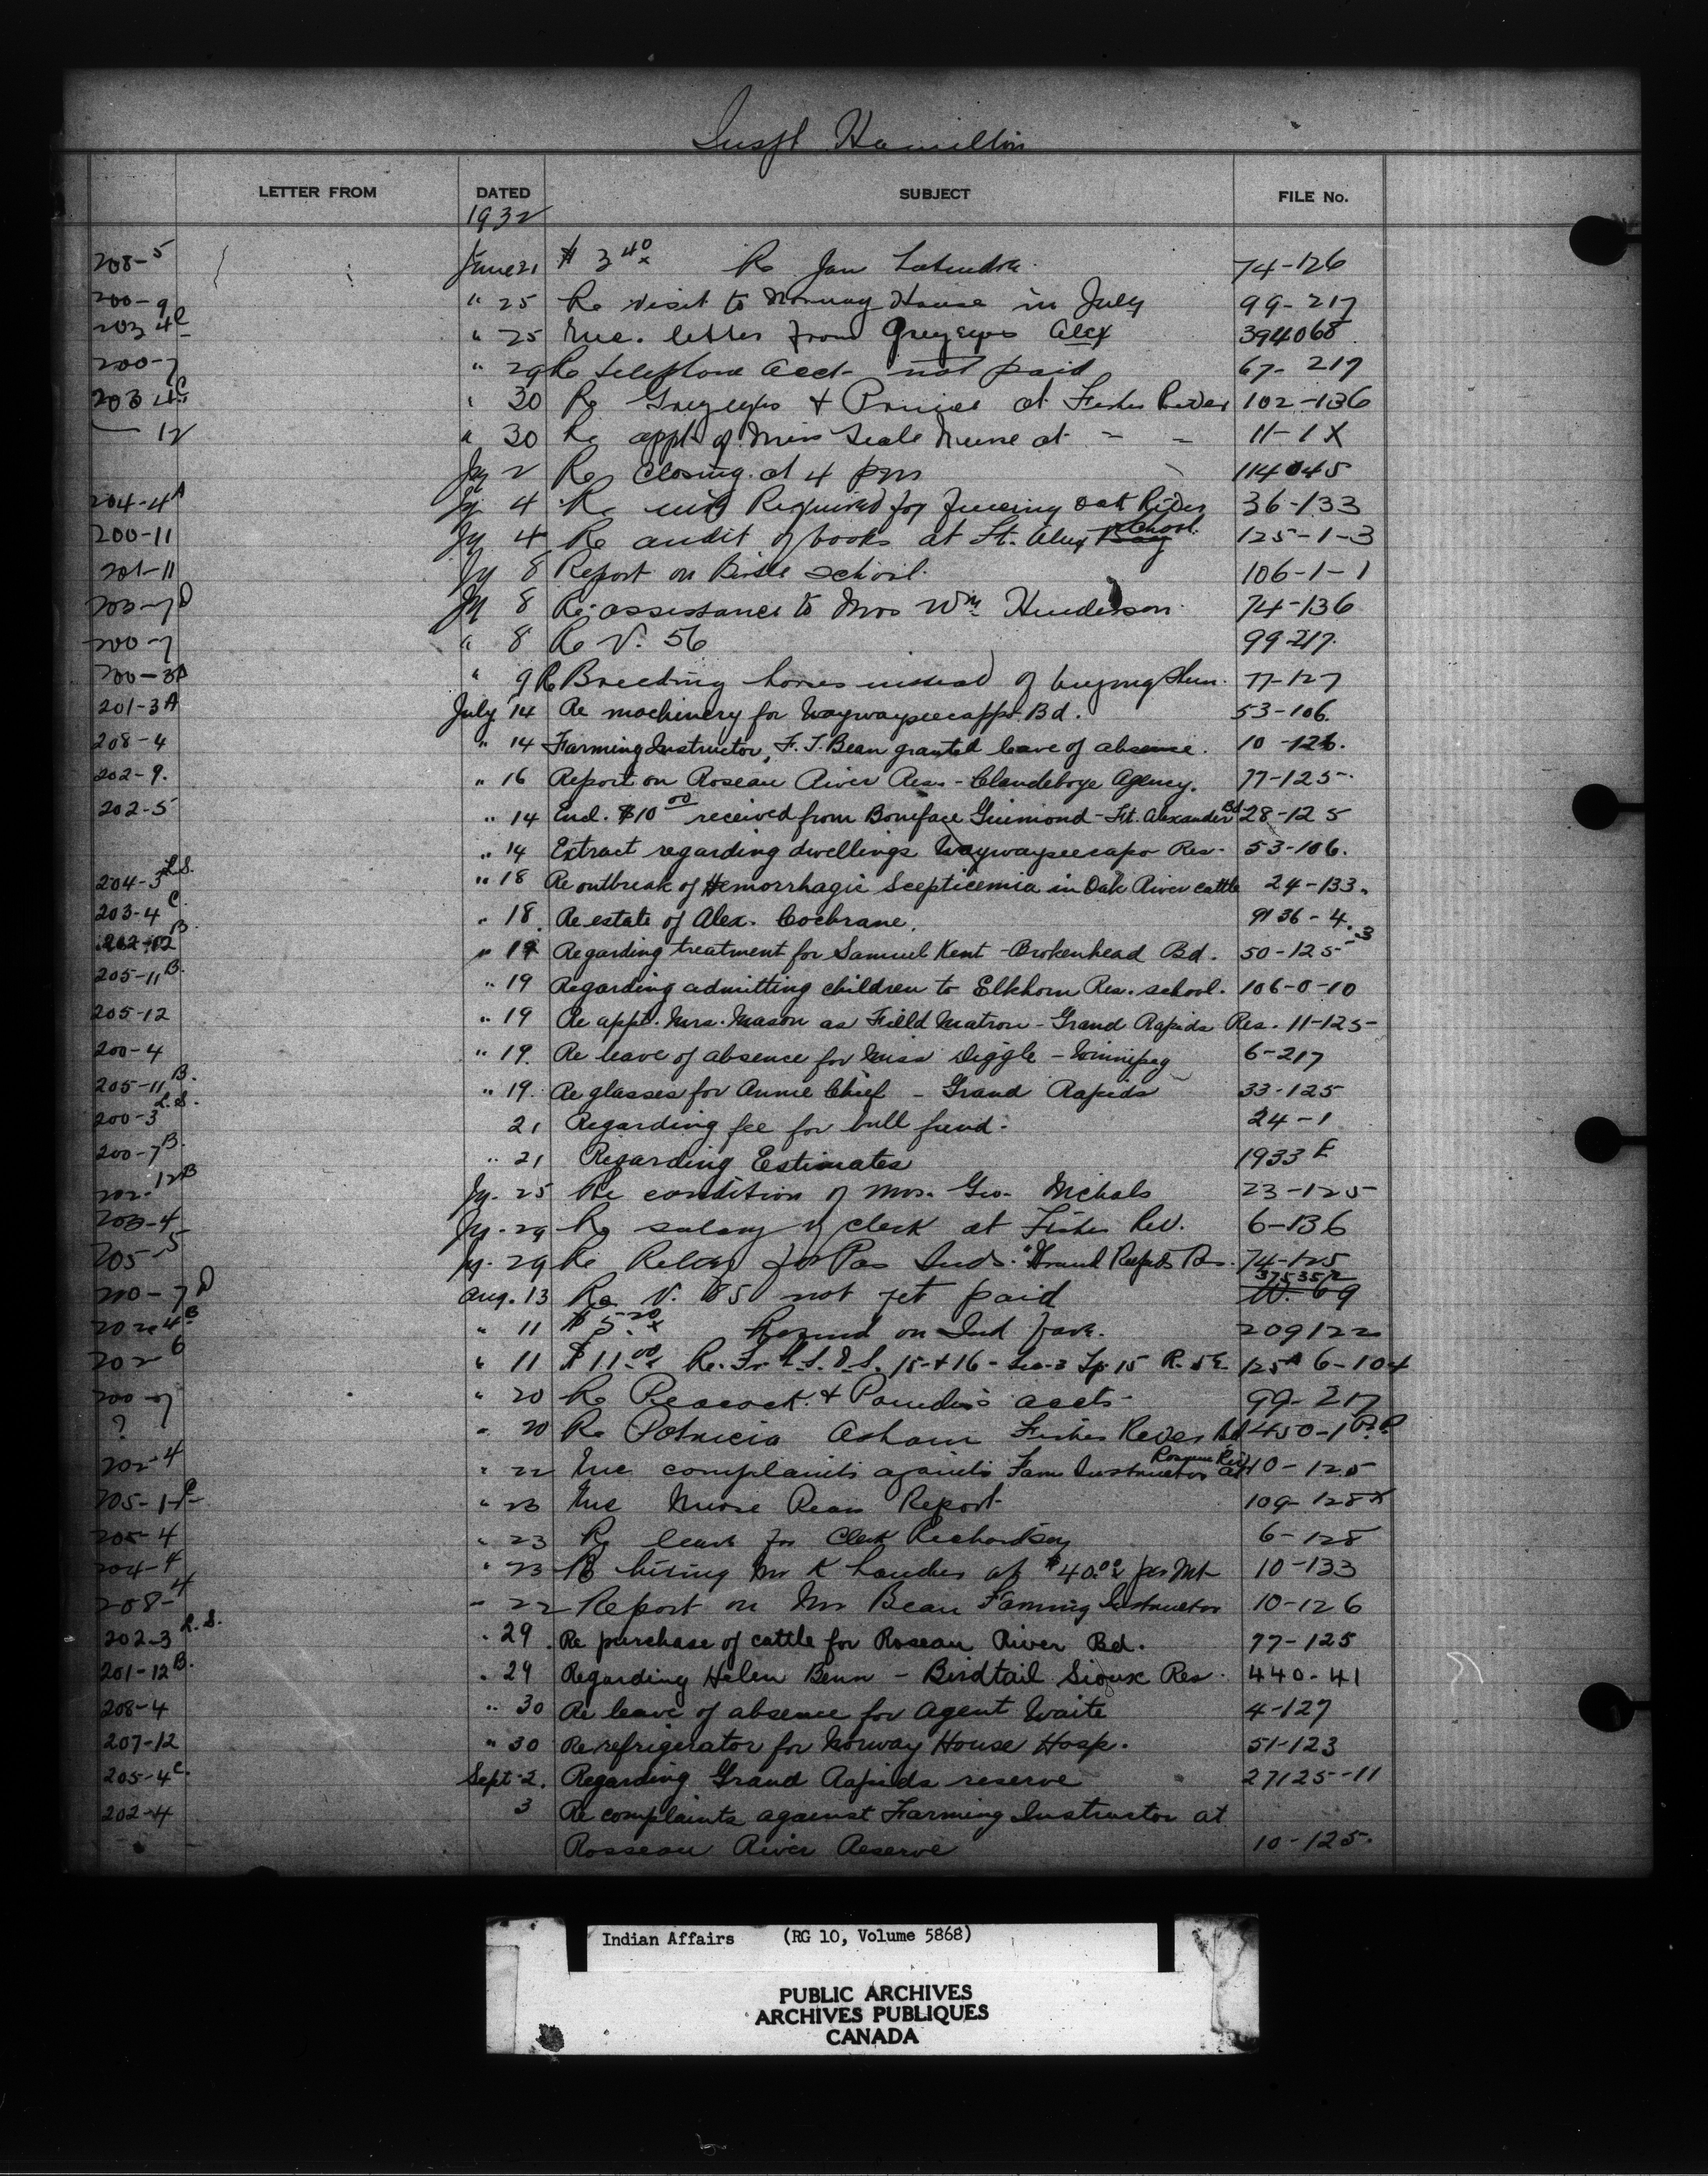 Inspt Hamilton
LETTER FROM DATED SUBJECT FILE No.
1932
208-5 June 21 $3.40 Re Jan 74-126
200-9 " 25 Re visit to Norway House in July 99-217
203-4C " 25 Enc. letter from Greyeyes Alex 394068
200-7 " 29 Re telephone acct- not paid 67-217
203-4C " 30 Re Greyeyes & Prince at Fisher River 102-136
— 12 " 30 Re appt. of Miss Seale Nurse at - - 11-1X
Jy 2 Re closing at 4 pm 114045
204-4A Jy 4 Re Required for fencing Oak River 36-133
200-11 Jy 4 Re audit of books at Ft. Alex School 125-1-3
201-11 Jy 8 Report on Birtle school. 106-1-1
203-7D Jy 8 Re assistance to Mrs Wm Henderson 74-136
200-7 " 8 Re V. 56 99-217.
200-3A " 9 Re Breeding horses instead of buying them. 77-127
201-3A July 14 Re machinery for Waywayseecappo Bd. 53-106.
208-4 " 14 Farming Instructor, F. J. Bean granted leave of absence. 10-126.
202-9. " 16 Report on Roseau River Res - Clandeboye Agency. 77-125-
202-5 " 14 Encl. $10.00 received from Boniface Guimond - Ft. Alexander Bd 28-125
" 14 Extract regarding dwellings Waywayseecapo Res- 53-106.
204-3 L.S. " 18 Re outbreak of Hemorrhagic Scepticemia in Oak River cattle 24-133.
203-4C. " 18. Re estate of Alex. Cochrane. 9136-4.-3
202-12B. " 19 Regarding treatment for Samuel Kent - Brokenhead Bd. 50-125-
205-11B. " 19 Regarding admitting children to Elkhorn Res. school. 106-0-10
205-12 " 19 Re appt. Mrs. Mason as Field Matron - Grand Rapids Res. 11-125-
200-4 " 19. Re leave of absence for Miss Diggle - Winnipeg 6-217
205-11B. " 19. Re glasses for Annie Chief - Grand Rapids 33-125
200-3 L.S. 21 Regarding fee for bull fund- 24-1
200-7B. " 21 Regarding Estimates 1933 E
202-12B Jy. 25 Re condition of Mrs. Geo. Nichals 23-125
203-4 Jy. 29 Re salary of clerk at Fisher Riv. 6-136
205-5 Jy. 29 Re Relief for Pas Inds. "Grand Rapids Res. 74-125
200-7D Aug. 13 Re V. 85 not yet paid 375352
202-4B " 11 $5.20 Refund on Ind fare. 209122
202-6 " 11 $11.00 Re. Fr. L.S.D.S. 15-+16- Sec-3 Tp. 15 R. 5E 125A 6-104
200-7 " 20 Re Peacock & accts- 99-217
? " 20 Re Patricia Asham Fisher River Bd 450-1
202-4 " 22 Enc complaints against Farm Instructor at Roseau Riv 10-125
205-1 " 23 Enc Nurse Report 109-128X
205-4 " 23 Re leave for Clerk Richardson 6-128
204-4 " 23 Re hiring Mr K at $40.00 per Mt 10-133
208-4 " 22 Report on Mr Bean Farming Instructor 10-126
202-3 L.S. " 29 Re purchase of cattle for Roseau River Bd. 77-125
201-12B. " 29 Regarding Helen Benn - Birdtail Sioux Res. 440-41
208-4 " 30 Re leave of absence for Agent Waite 4-127
207-12 " 30 Re refrigerator for Norway House Hosp. 51-123
205-4C. Sept-2. Regarding Grand Rapids reserve 27125-11
202-4 3 Re complaints against Farming Instructor at
Rosseau River Reserve 10-125.
Indian Affairs (RG 10, Volume 5868)
PUBLIC ARCHIVES
ARCHIVES PUBLIQUES
CANADA